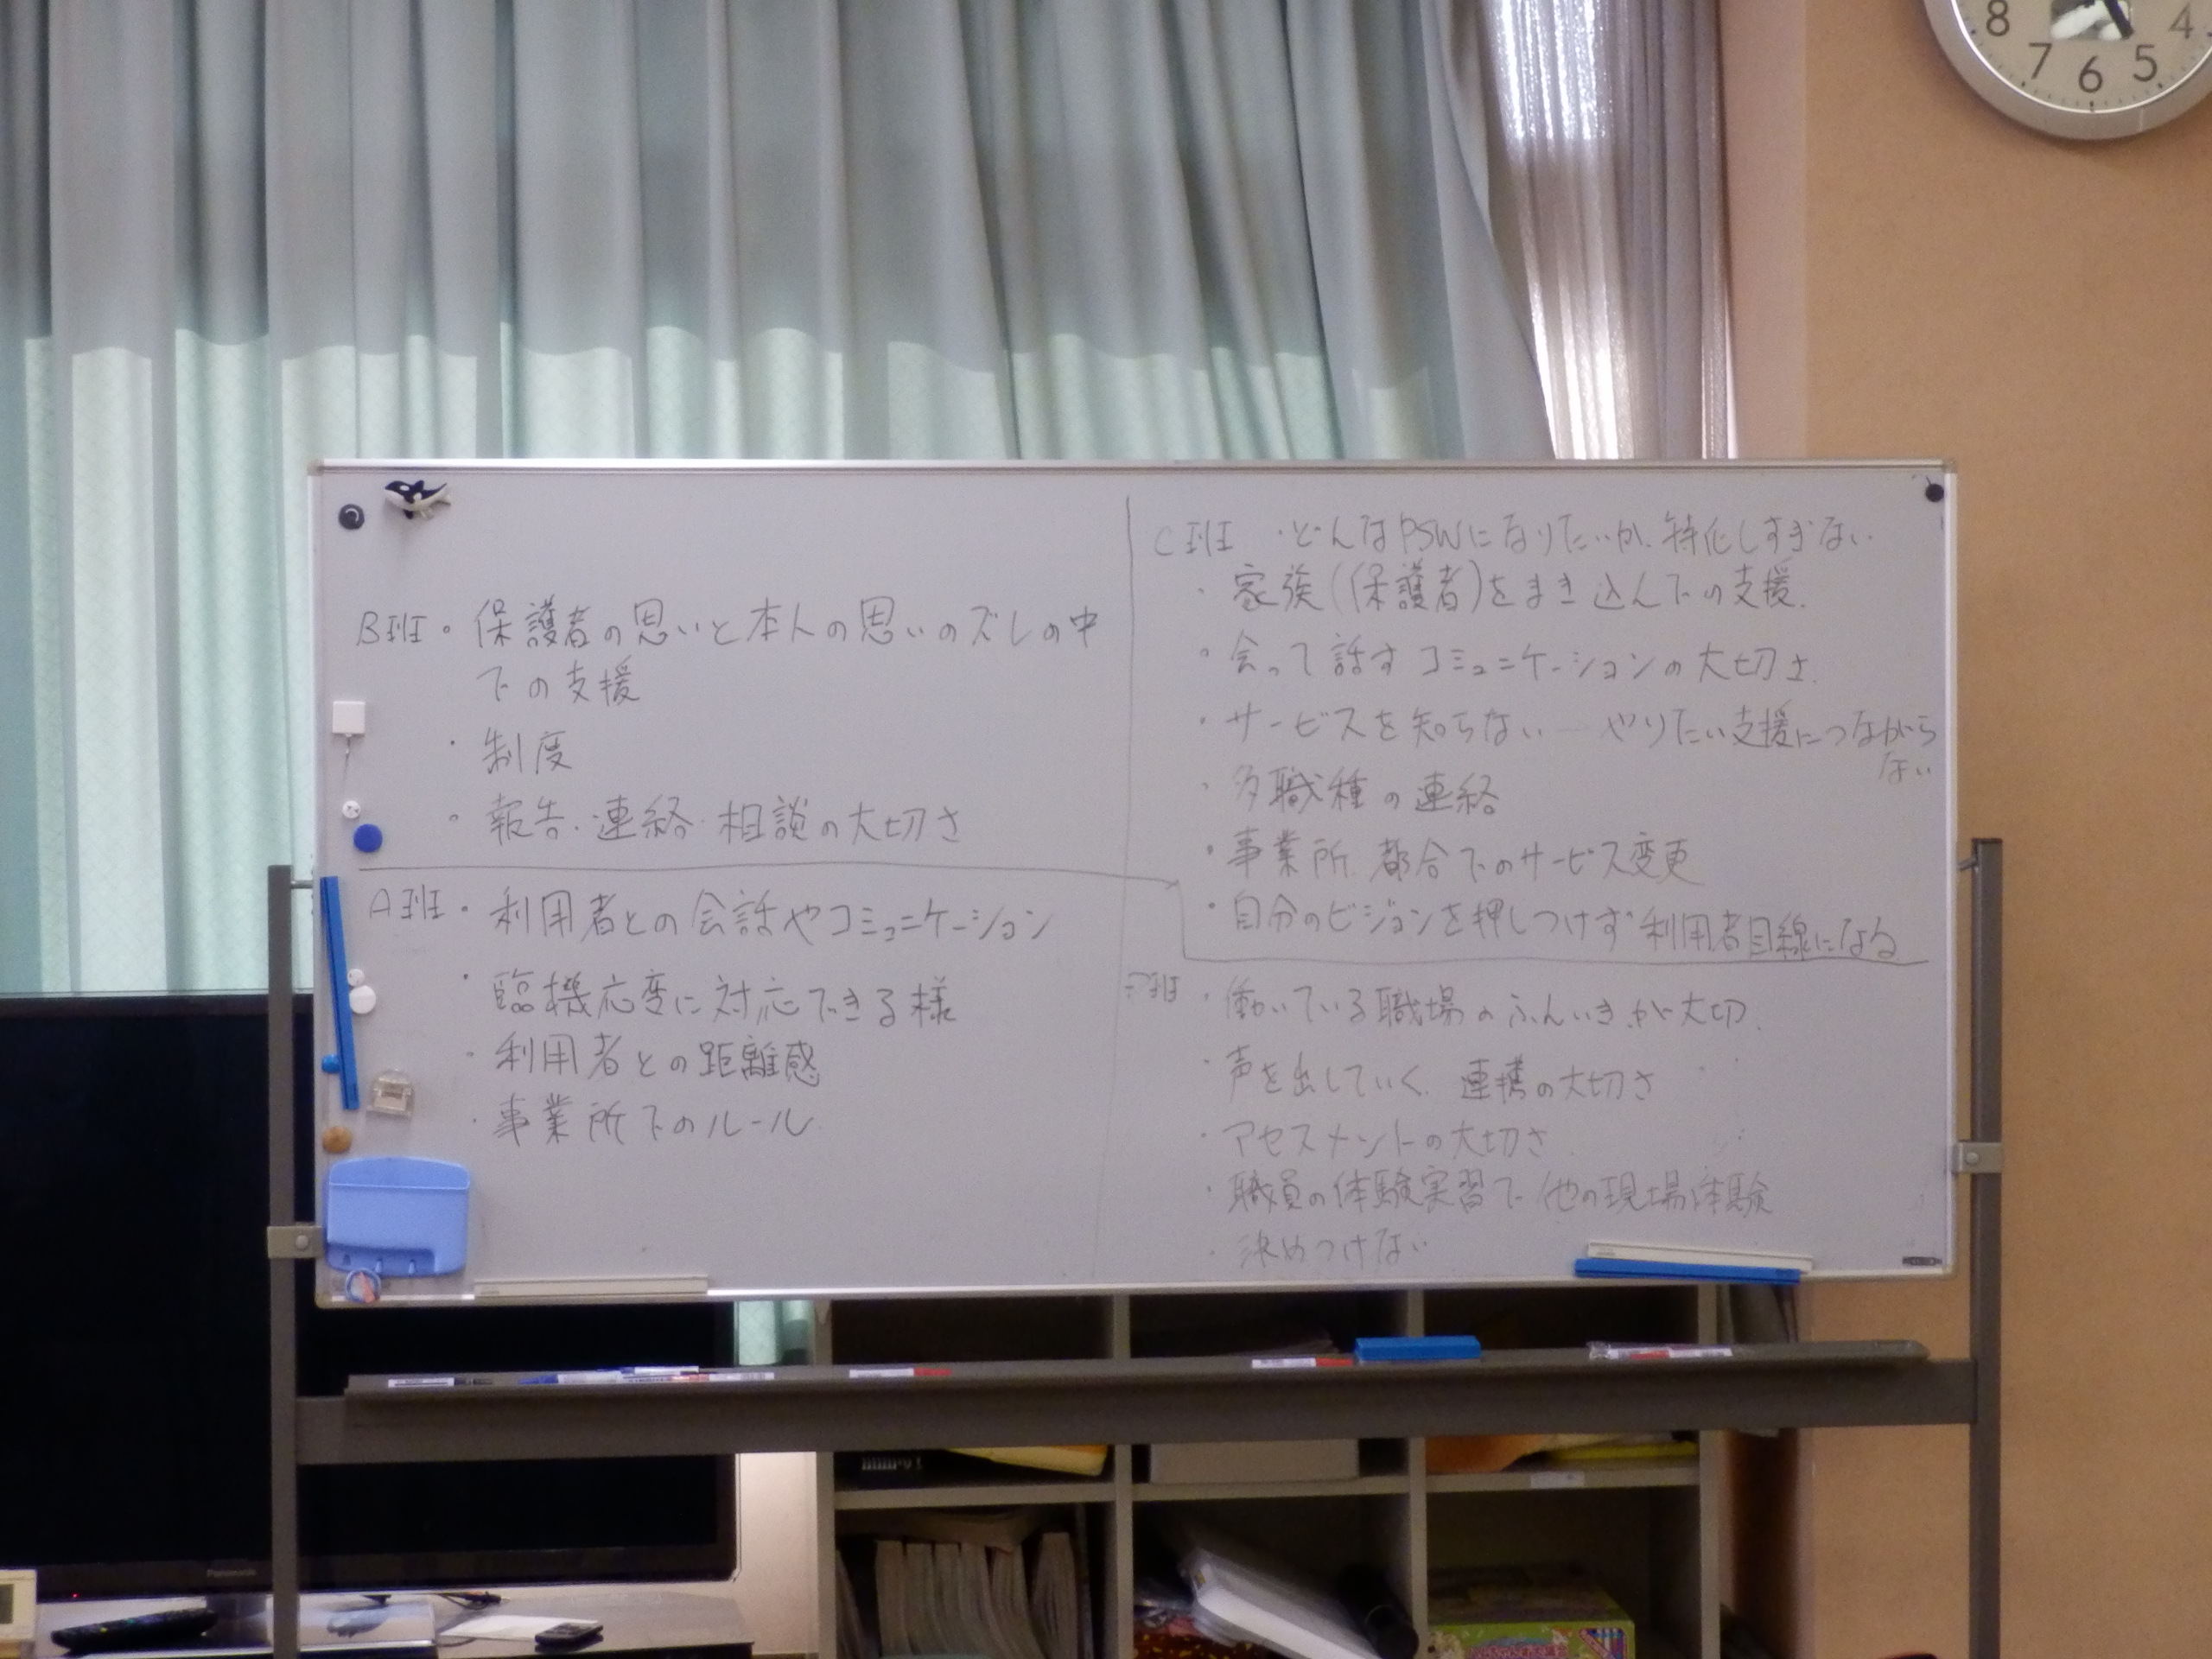 8 7 6 5 4
B班 ・保護者の思いと本人の思いのズレの中
での支援
・制度
・報告・連絡・相談の大切さ
A班 ・利用者との会話やコミュニケーション
・臨機応変に対応できる様
・利用者との距離感
・事業所でのルール
C班 ・どんなPSWになりたいか、特化しすぎない
・家族(保護者)をまき込んでの支援.
・会って話すコミュニケーションの大切さ.
・サービスを知らない―やりたい支援につながら
ない
・多職種の連絡
・事業所都合でのサービス変更
・自分のビジョンを押しつけず利用者目線になる
班 ・働いている職場のふんいきが大切.
・声を出していく. 連携の大切さ
・アセスメントの大切さ
・職員の体験実習で他の現場体験
・決めつけない
Panasonic